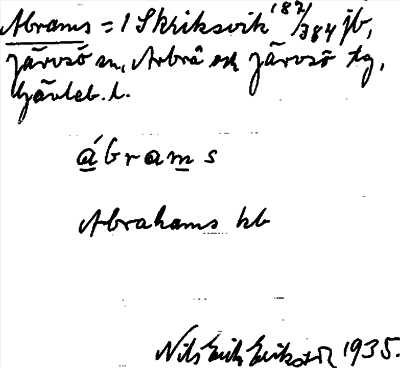 Abrams = 1 Skriksvik 187/384 jb,
Järvsö sn, Arbrå och Järvsö tg,
Gävleb. l.
ábrams
Abrahams kb
Nils Erik 1935.